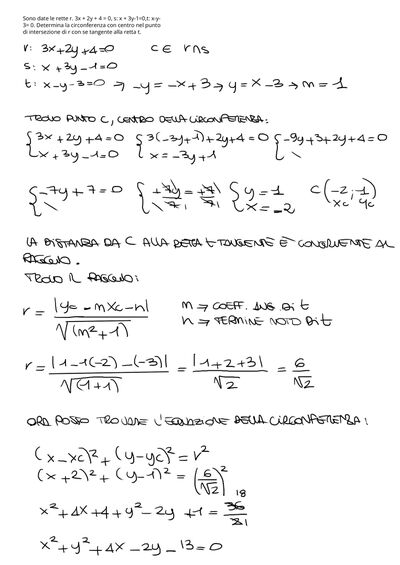 Sono date le rette r. 3x + 2y + 4 = 0, s: x + 3y-1=0,t: x-y-
3= 0. Determina la circonferenza con centro nel punto
di intersezione di r con se tangente alla retta t.
r: 3x+2y+4=0 C∈ r∩s
s: x+3y-1=0
t: x-y-3=0 → -y=-x+3 → y=x-3 → m=1
TROVO PUNTO C, CENTRO DELLA CIRCONFERENZA:
{3x+2y+4=0 {3(-3y+1)+2y+4=0 {-9y+3+2y+4=0
{x+3y-1=0 {x=-3y+1 {\
{-7y+7=0 {+7y/7=+7/7 {y=1 C(-2,1)
{\ {\ {x=-2 xc, yc
LA DISTANZA DA C ALLA RETTA t TANGENTE È CONGRUENTE AL
RAGGIO.
TROVO IL RAGGIO:
r = |yc - mxc - n| / √(m²+1) m → COEFF. ANG. DI t
n → TERMINE NOTO DI t
r = |1-1(-2)-(-3)| / √(1+1) = |1+2+3| / √2 = 6/√2
ORA POSSO TROVARE L'EQUAZIONE DELLA CIRCONFERENZA:
(x-xc)²+(y-yc)²=r²
(x+2)²+(y-1)²=(6/√2)²
x²+4x+4+y²-2y+1=36/2 18
x²+y²+4x-2y-13=0